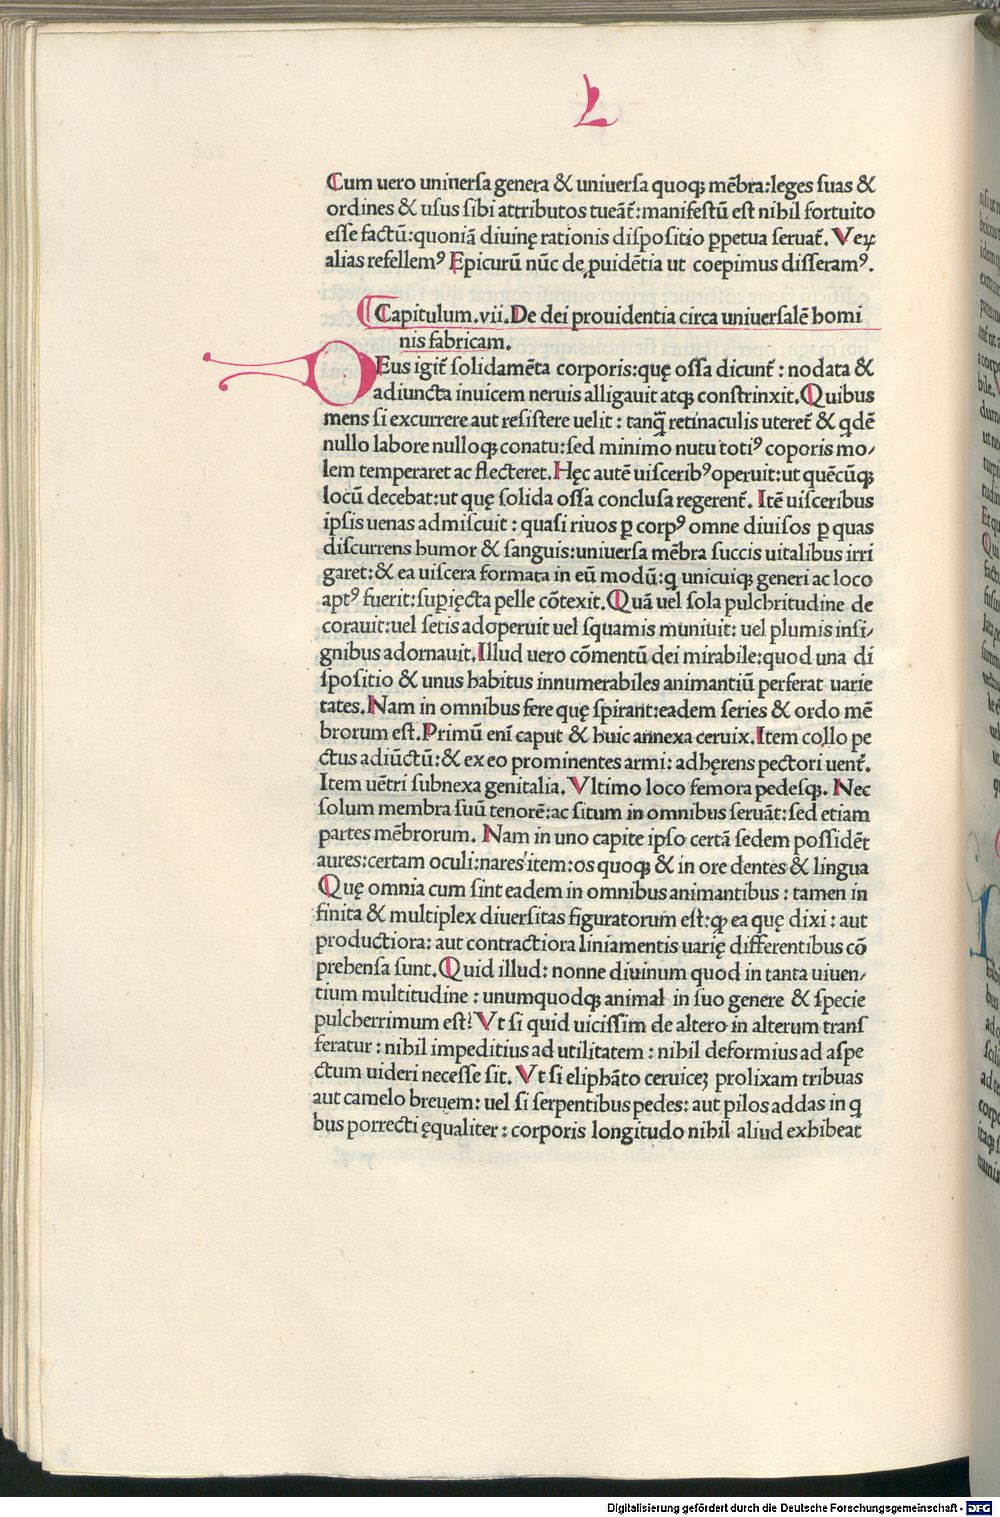 L
Cum uero uniuersa genera & uniuersa quoqꝫ mēbra:leges suas &
ordines & usus sibi attributos tueāt̄:manifestū est nihil fortuito
esse factū:quoniā diuinę rationis dispositio ꝑpetua seruat̄. Veꝝ
alias refellemꝰ Epicurū nūc de ꝓuidētia ut coepimus disseramꝰ.
Capitulum.vii.De dei prouidentia circa uniuersalē homi
nis fabricam.
DEus igit̄ solidamēta corporis:quę ossa dicunt̄ : nodata &
adiuncta inuicem neruis alligauit atqꝫ constrinxit.Quibus
mens si excurrere aut resistere uelit : tanq̄ retinaculis uteret̄ & qdē
nullo labore nulloqꝫ conatu:sed minimo nutu totiꝰ coporis mo⸗
lem temperaret ac flecteret.Hęc autē uisceribꝰ operuit:ut quēcūqꝫ
locū decebat:ut quę solida ossa conclusa regerent̄. Itē uisceribus
ipsis uenas admiscuit : quasi riuos ꝑ corpꝰ omne diuisos ꝑ quas
discurrens humor & sanguis:uniuersa mēbra succis uitalibus irri
garet:& ea uiscera formata in eū modū:q unicuiqꝫ generi ac loco
aptꝰ fuerit:suꝑięcta pelle cōtexit.Quā uel sola pulchritudine de
corauit:uel setis adoperuit uel squamis muniuit: uel plumis insi⸗
gnibus adornauit.Illud uero cōmentū dei mirabile:quod una di
spositio & unus habitus innumerabiles animantiū perferat uarie
tates.Nam in omnibus fere quę spirant:eadem series & ordo mē
brorum est.Primū enī caput & huic annexa ceruix.Item collo pe
ctus adiūctū:& ex eo prominentes armi: adhęrens pectori uent̄.
Item uētri subnexa genitalia. Vltimo loco femora pedesqꝫ. Nec
solum membra suū tenorē:ac situm in omnibus seruāt:sed etiam
partes mēbrorum. Nam in uno capite ipso certā sedem possidēt
aures:certam oculi:nares item:os quoqꝫ & in ore dentes & lingua
Quę omnia cum sint eadem in omnibus animantibus : tamen in
finita & multiplex diuersitas figuratorum est:qꝫ ea quę dixi : aut
productiora: aut contractiora liniamentis uarię differentibus cō
prehensa sunt.Quid illud: nonne diuinum quod in tanta uiuen⸗
tium multitudine : unumquodqꝫ animal in suo genere & specie
pulcherrimum est? Vt si quid uicissim de altero in alterum transf
feratur : nihil impeditius ad utilitatem : nihil deformius ad aspe
ctum uideri necesse sit. Vt si eliphāto ceruiceꝫ prolixam tribuas
aut camelo breuem: uel si serpentibus pedes: aut pilos addas in q
bus porrecti ęqualiter : corporis longitudo nihil aliud exhibeat
Digitalisierung gefördert durch die Deutsche Forschungsgemeinschaft - DFG